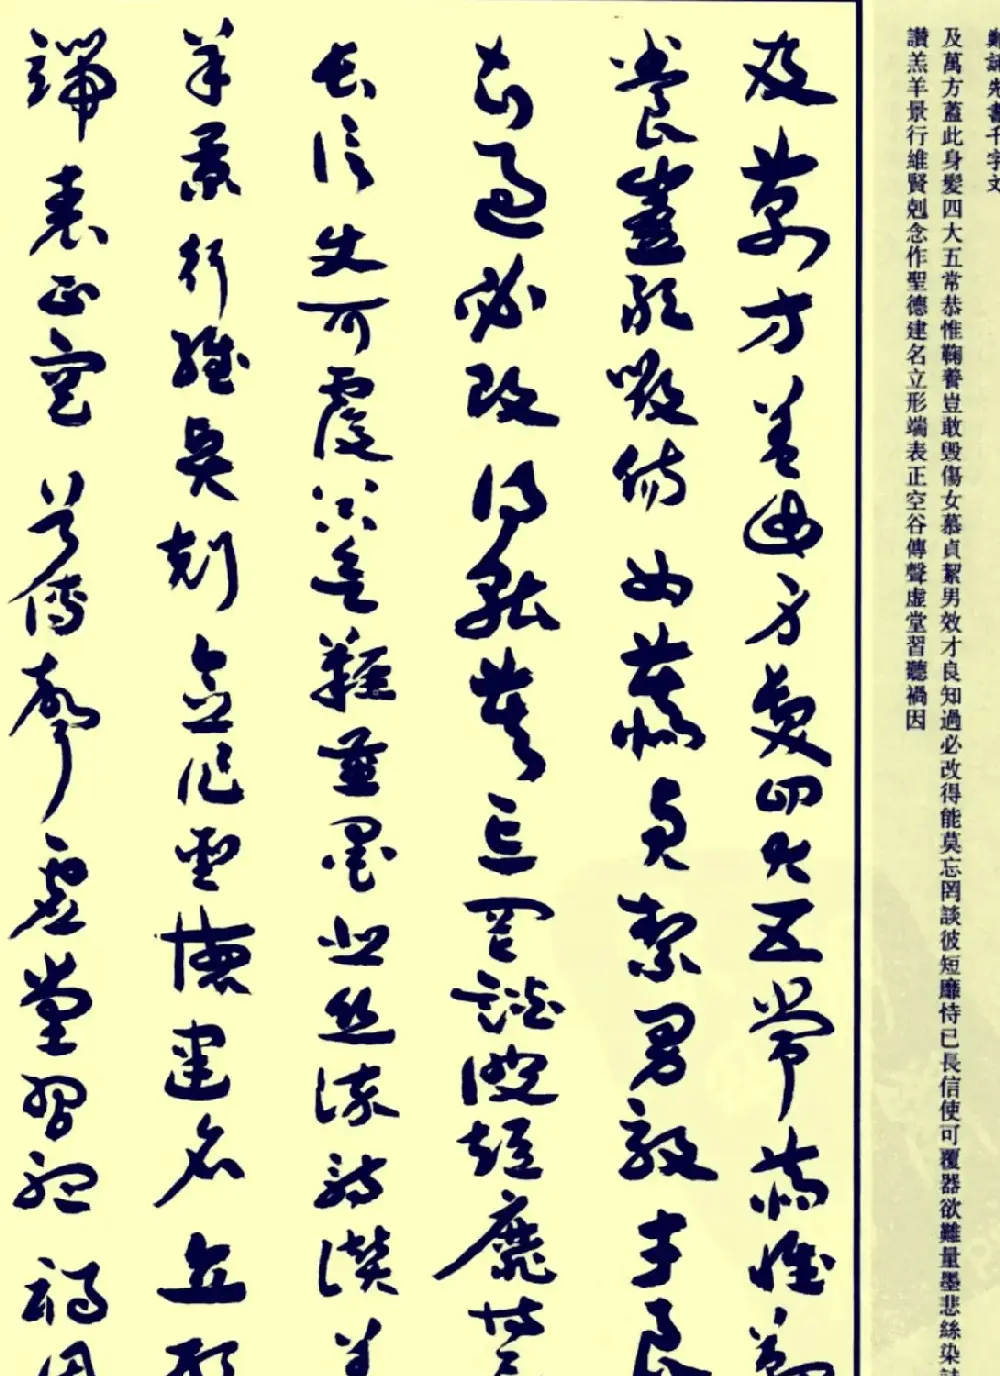 鄭誦先書千字文
及萬方蓋此身髮四大五常恭惟鞠養豈敢毀傷女慕貞絜男效才良知過必改得能莫忘罔談彼短靡恃已長信使可覆器欲難量墨悲絲染詩
讚羔羊景行維賢剋念作聖德建名立形端表正空谷傳聲虛堂習聽禍因
及萬方蓋此身髮四大五常恭惟鞠
養豈敢毀傷女慕貞絜男效才良
知過必改得能莫忘罔談彼短靡恃已
長信使可覆器欲難量墨悲絲染詩讚羔
羊景行維賢剋念作聖德建名立形
端表正空谷傳聲虛堂習聽禍因